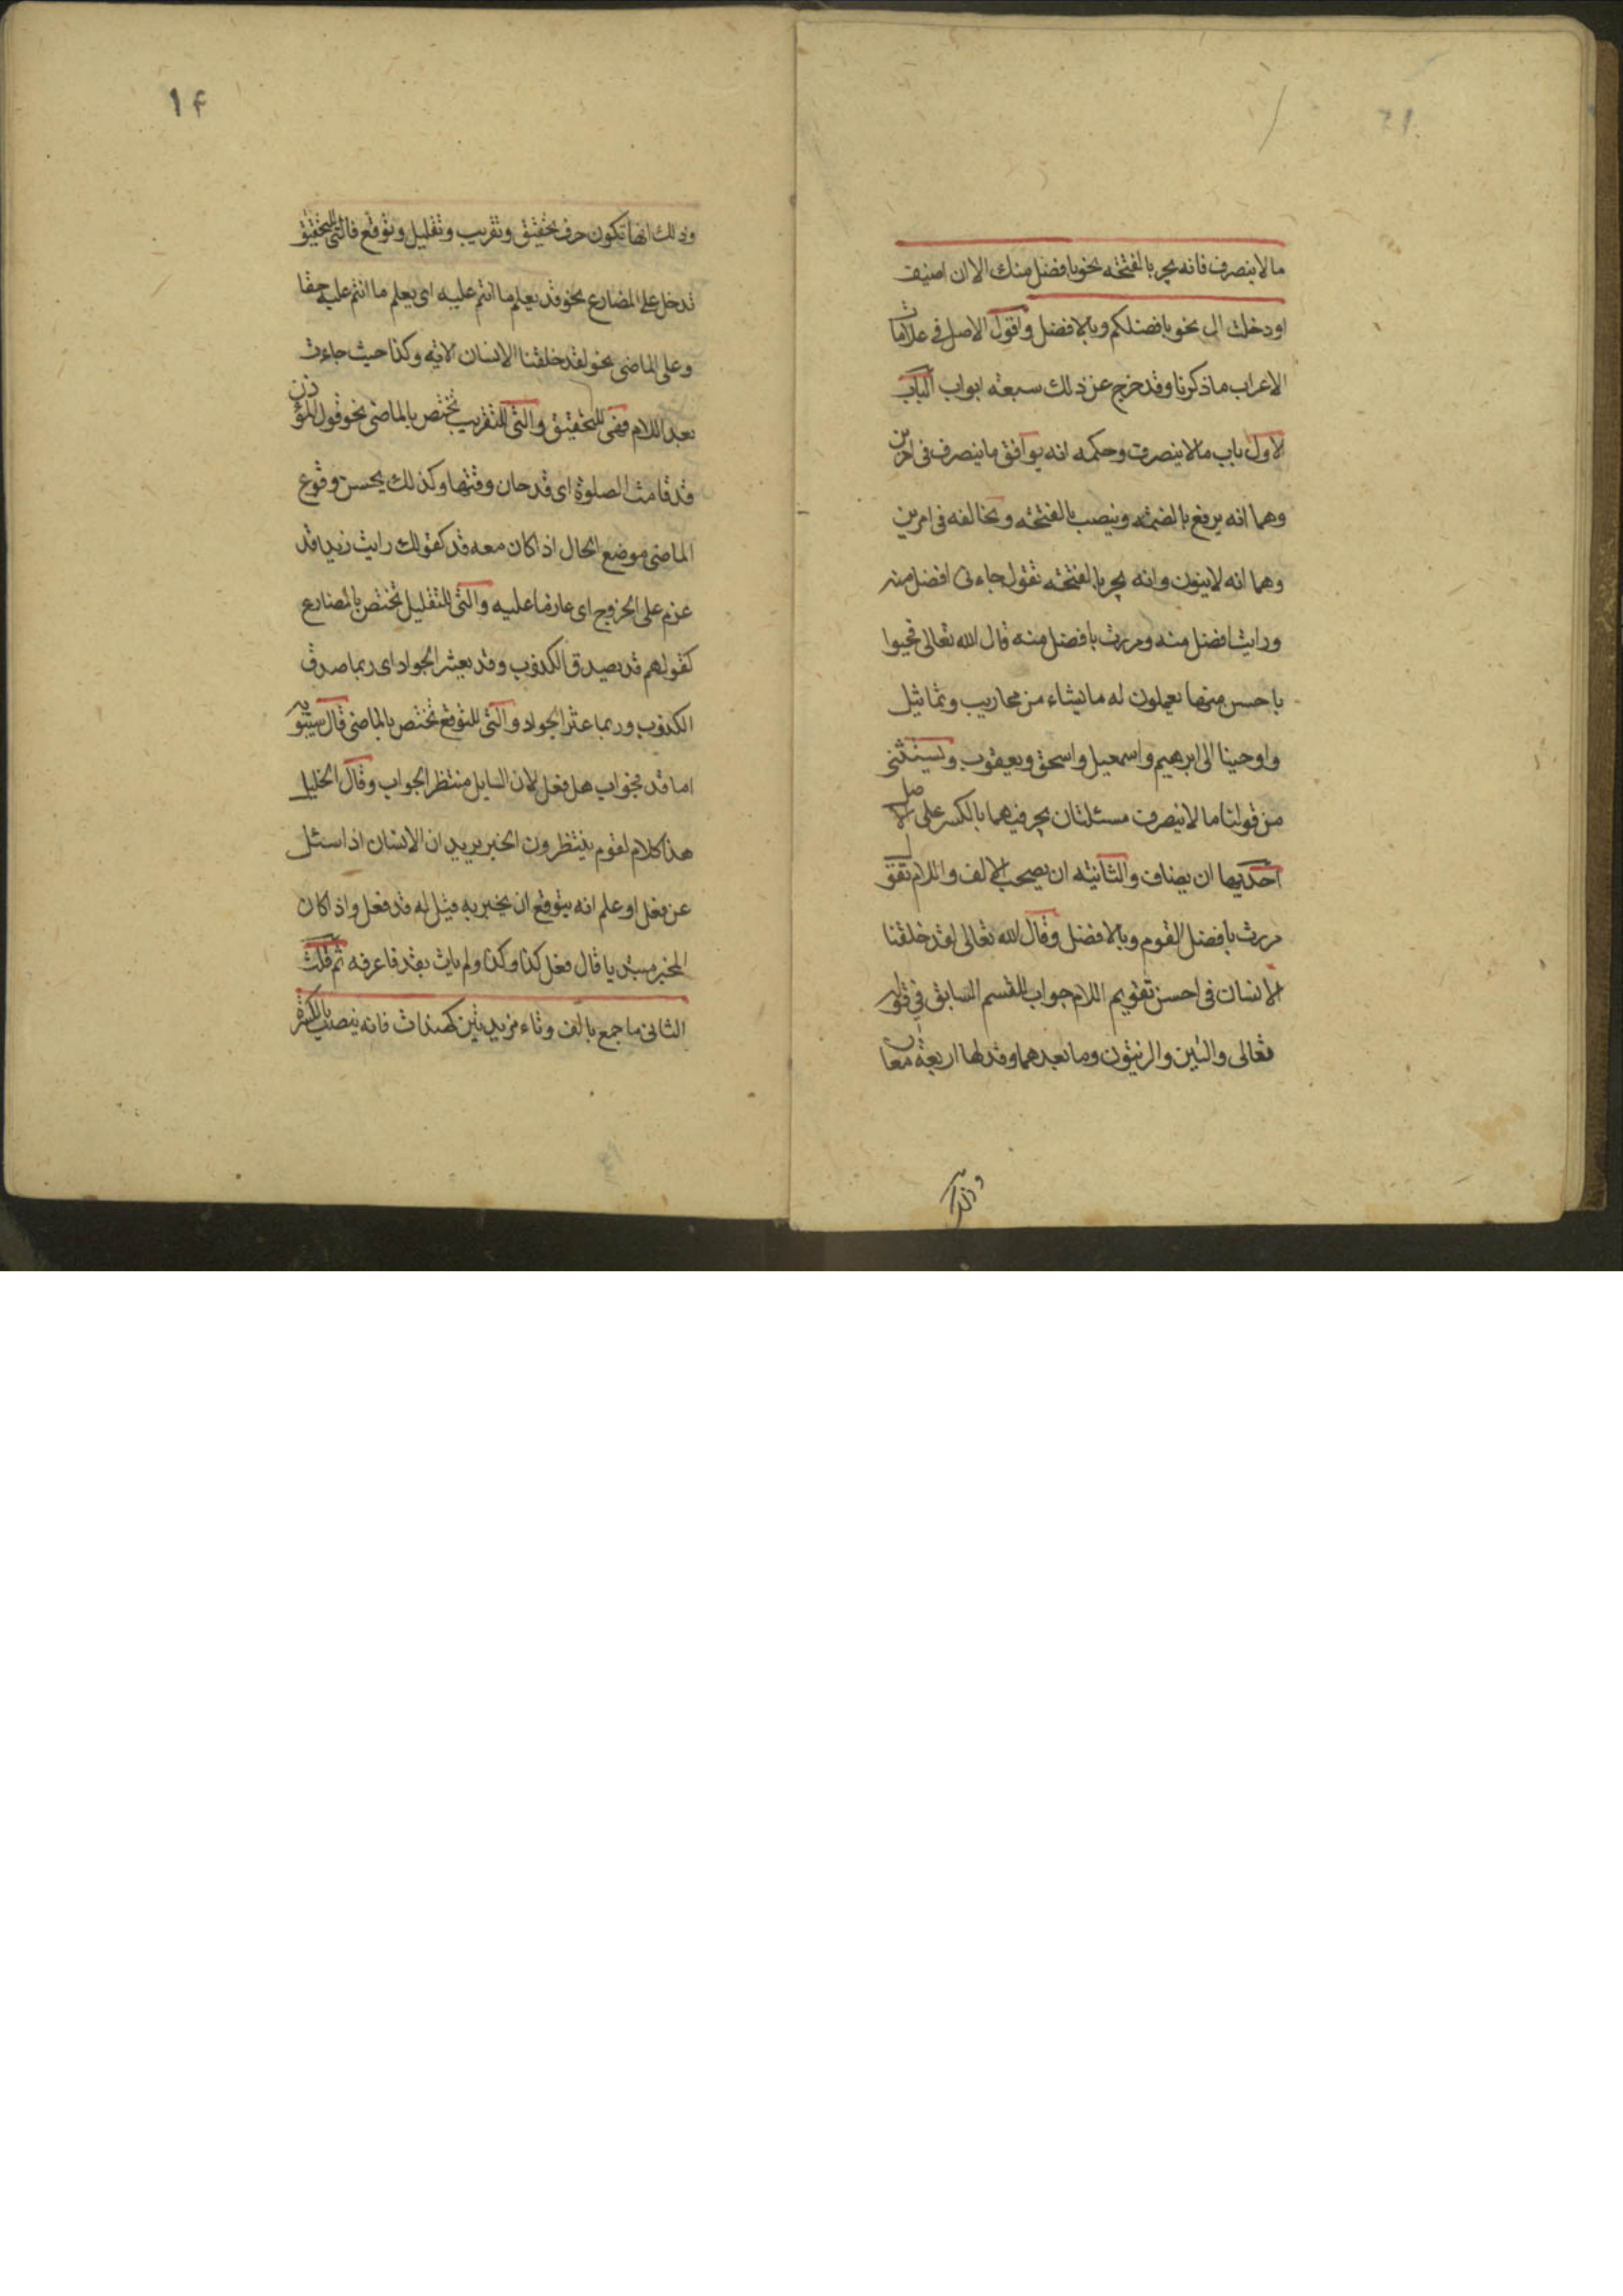 ما لا ينصرف فانه يجر بالفتحه نحو بافضل منك الا ان اضيف
او دخلت ال نحو بافضلكم وبالافضل واقول الاصل في علامات
الاعراب ما ذكرنا وقد خرج عن ذلك سبعه ابواب الباب
الاول باب ما لا ينصرف وحكمه انه يوافق ما ينصرف في امرين
وهما انه يرفع بالضمه وينصب بالفتحه ويخالفه في امرين
وهما انه لا ينون وانه يجر بالفتحه تقول جاءنى افضل منه
ورايت افضل منه ومررت بافضل منه قال الله تعالى فحيوا
باحسن منها يعملون له ما يشاء من محاريب وتماثيل
واوحينا الى ابرهيم واسمعيل واسحق ويعقوب ويستثنى
من قولنا ما لا ينصرف مسئلتان يجر فيهما بالكسر على الاصل
احديهما ان يضاف والثانيه ان يصحب الالف واللام تقول
مررت بافضل القوم وبالافضل وقال الله تعالى لقد خلقنا
الانسان في احسن تقويم اللام جواب للقسم السابق في قوله
تعالى والتين والزيتون وما بعدهما وقد لها اربعة معان
وذلك
١۴
وذلك انها تكون حرف تحقيق وتقريب وتقليل وتوقع فالتى للتحقيق
تدخل على المضارع نحو قد يعلم ما انتم عليه اى يعلم ما انتم عليه حقا
وعلى الماضى نحو لقد خلقنا الانسان الايه وكذا حيث جاءت
بعد اللام فهى للتحقيق والتى للتقريب تختص بالماضى نحو قول المؤذن
قد قامت الصلوة اى قد حان وقتها وكذلك يحسن وقوع
الماضى موضع الحال اذا كان معه قد كقولك رايت زيدا قد
عزم على الخروج اى عازما عليه والتى للتقليل تختص بالمضارع
كقولهم قد يصدق الكذوب وقد يعثر الجواد اى ربما صدق
الكذوب وربما عثر الجواد والتى للتوقع تختص بالماضى قال سيبويه
اما قد فجواب هل فعل لان السايل منتظر الجواب وقال الخليل
هذا كلام لقوم ينتظرون الخبر يريد ان الانسان اذا سئل
عن فعل او علم انه يتوقع ان يخبر به قيل له قد فعل واذا كان
المخبر مبتديا قال فعل كذا وكذا ولم يات بقد فاعرفه ثم قلت
الثانى ما جمع بالف وتاء مزيدتين كهندات فانه ينصب بالكسرة